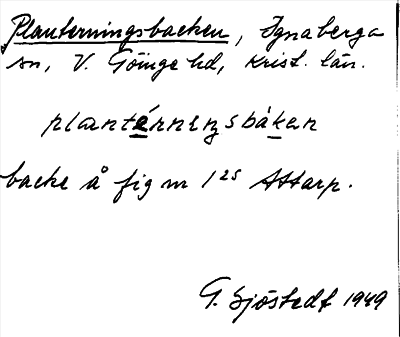 Planterningsbacken, Ignaberga
sn, V. Göinge hd, Krist. län.
plantérnıŋsbákan
backe å fig m 1²⁵ Attarp.
G. Sjöstedt 1949